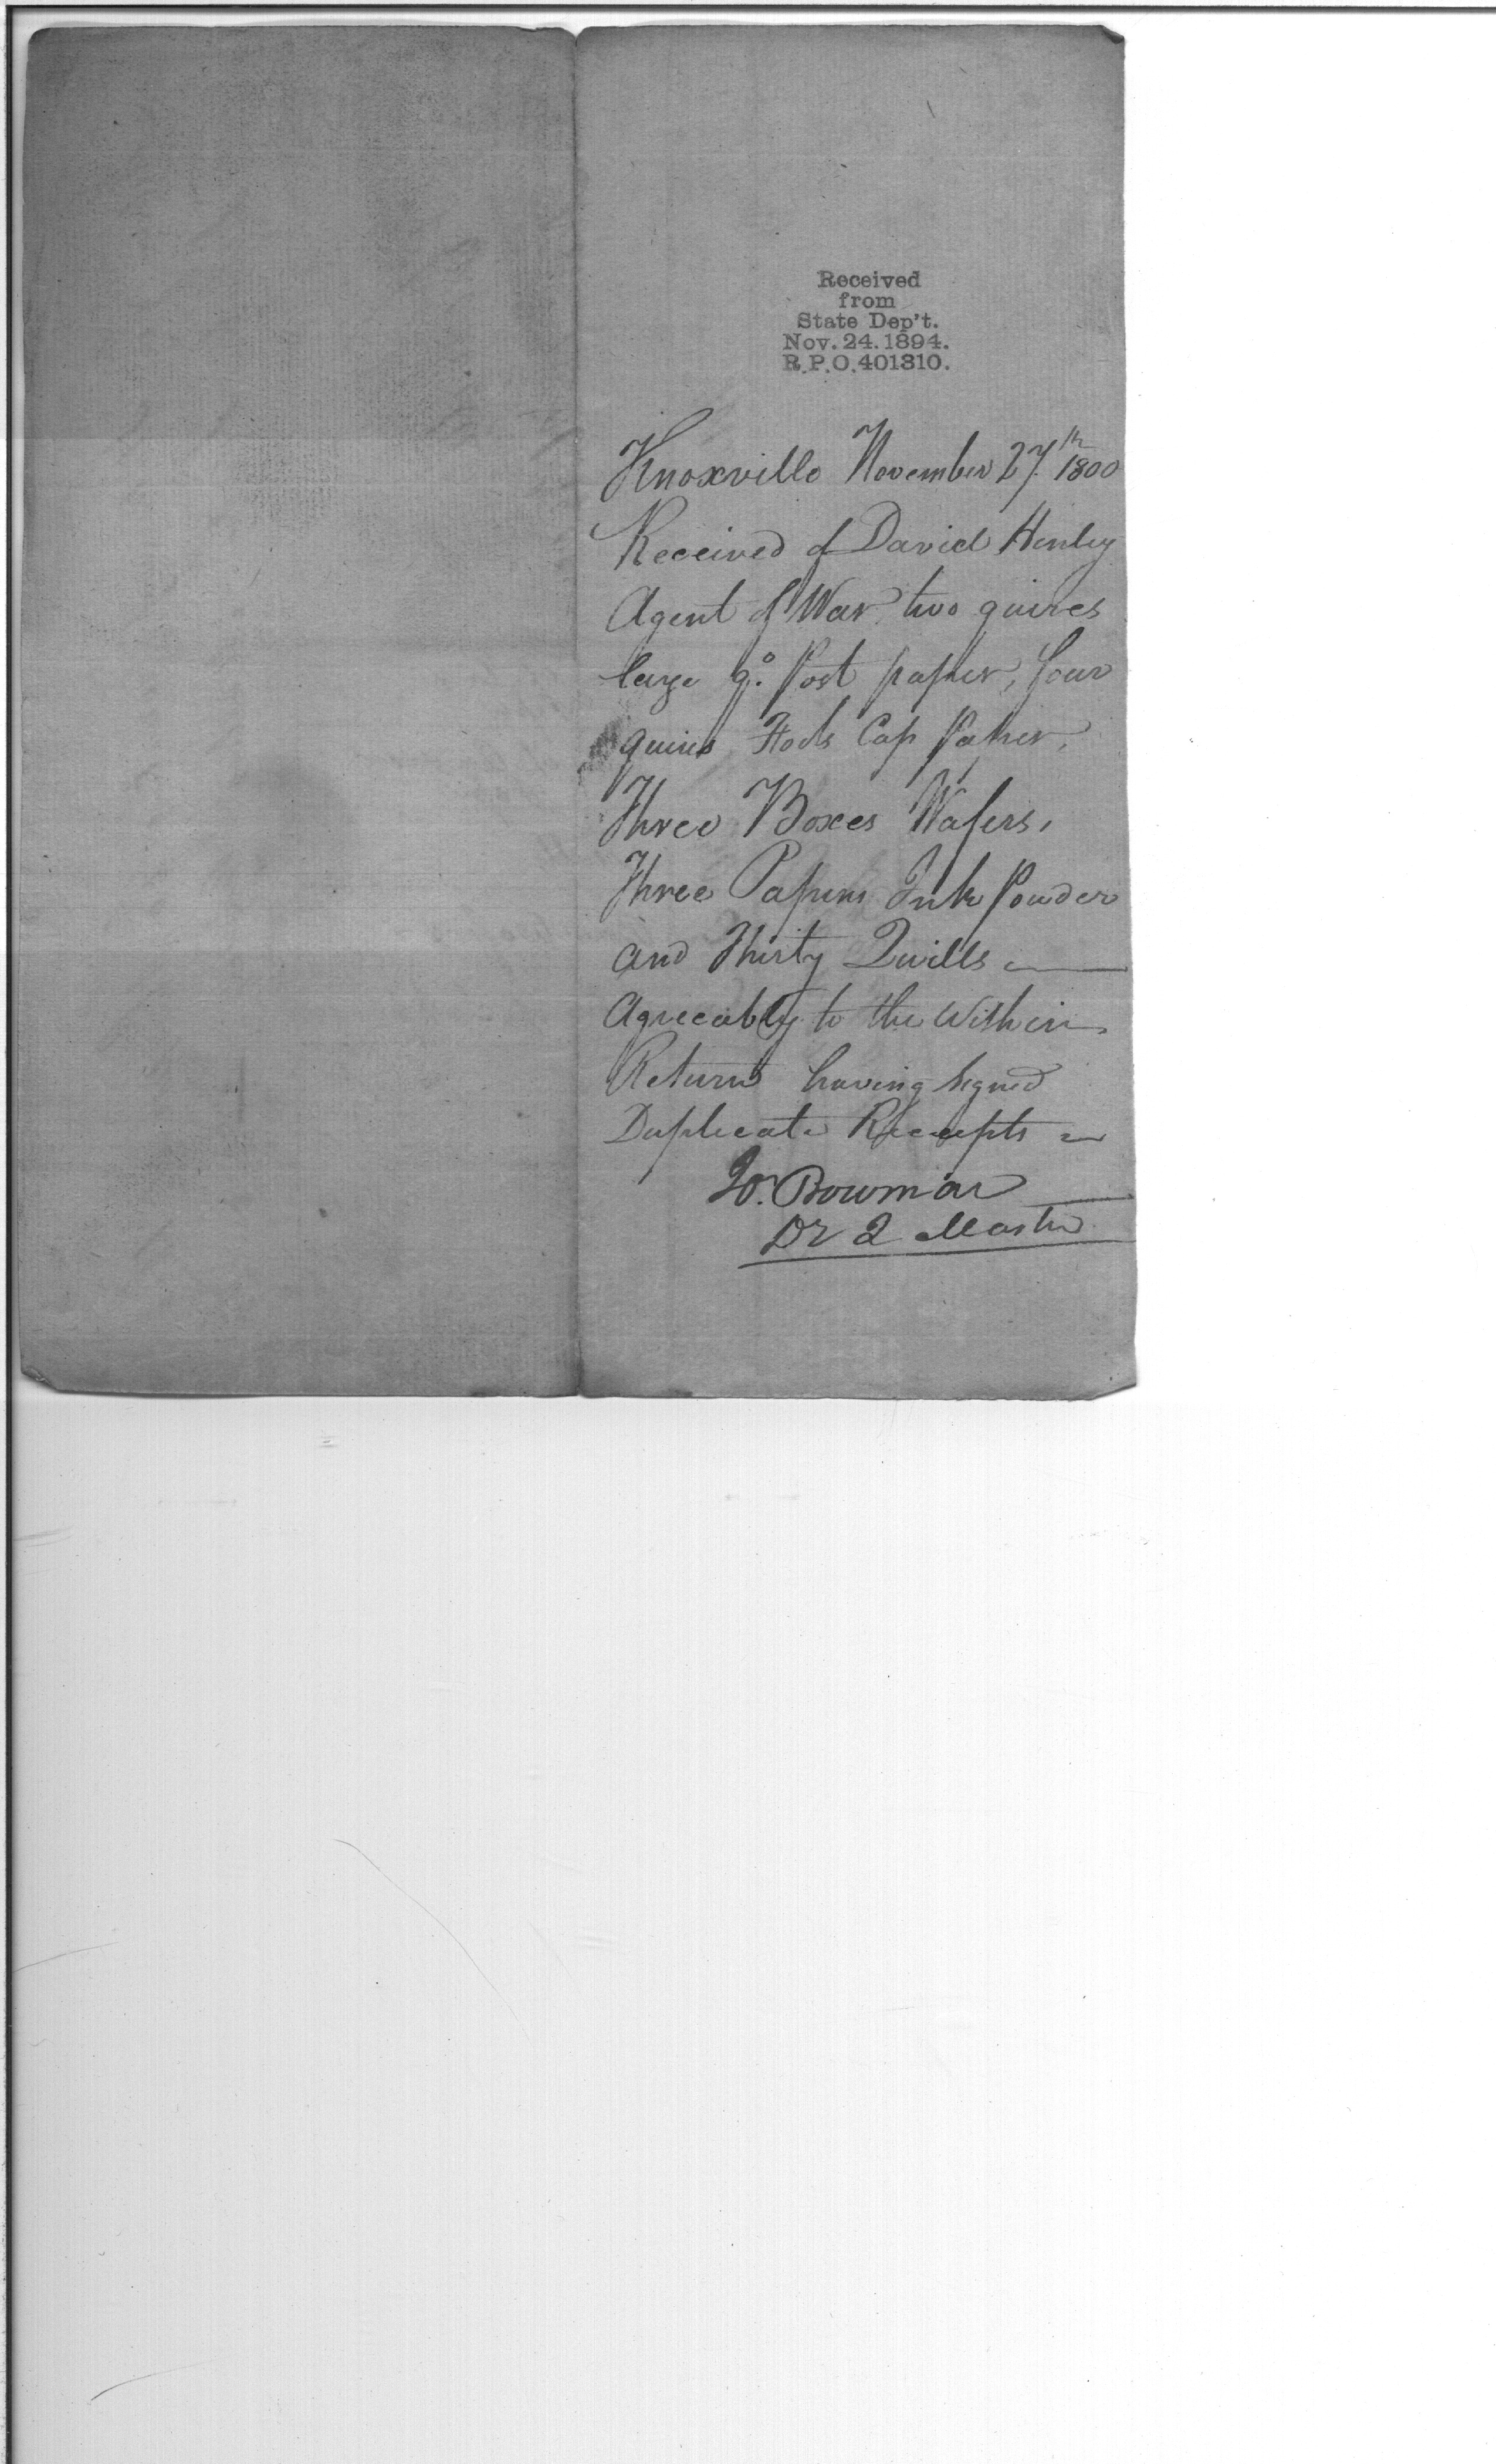 Received
from
State Dep't.
Nov. 24. 1894.
R.P.O. 401310.
Knoxville November 27th 1800
Received of David Henley
Agent of War two quires
large qo. Post paper, four
quires Fools Cap Paper,
Three Boxes Wafers,
Three Papers Ink Powder
and Thirty Quills
Agreeably to the Within
Return having signed
Duplicate Receipts
Jo. Bowmar
Dr Q Master